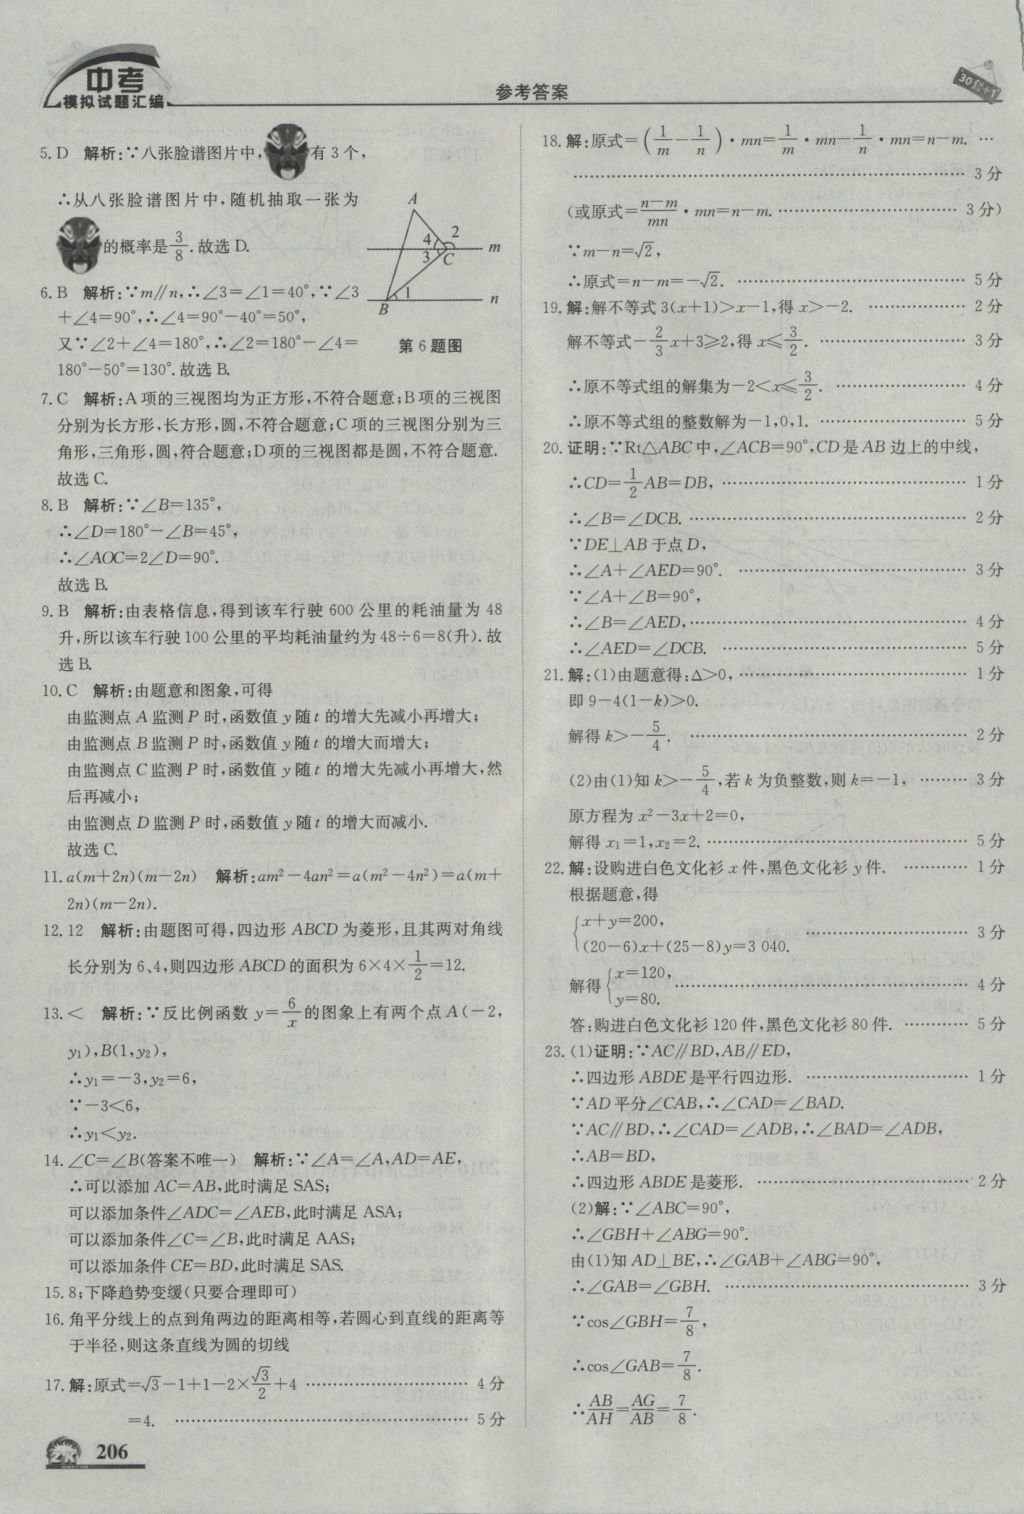 中考
模拟试题汇编
参考答案
5. D 解析:∵八张脸谱图片中,有 3 个,
∴从八张脸谱图片中,随机抽取一张为
的概率是3/8.故选 D.
6. B 解析:∵m∥n,∴∠3=∠1=40°,∵∠3
+∠4=90°,∴∠4=90°-40°=50°,
又∵∠2+∠4=180°,∴∠2=180°-∠4=
180°-50°=130°.故选 B.
A
4 2
3 C m
B 1 n
第 6 题图
7. C 解析:A 项的三视图均为正方形,不符合题意;B 项的三视图
分别为长方形,长方形,圆,不符合题意;C 项的三视图分别为三
角形,三角形,圆,符合题意;D 项的三视图都是圆,不符合题意.
故选 C.
8. B 解析:∵∠B=135°,
∴∠D=180°-∠B=45°,
∴∠AOC=2∠D=90°.
故选 B.
9. B 解析:由表格信息,得到该车行驶 600 公里的耗油量为 48
升,所以该车行驶 100 公里的平均耗油量约为 48÷6=8(升).故
选 B.
10. C 解析:由题意和图象,可得
由监测点 A 监测 P 时,函数值 y 随 t 的增大先减小再增大;
由监测点 B 监测 P 时,函数值 y 随 t 的增大而增大;
由监测点 C 监测 P 时,函数值 y 随 t 的增大先减小再增大,然
后再减小;
由监测点 D 监测 P 时,函数值 y 随 t 的增大而减小.
故选 C.
11. a(m+2n)(m-2n) 解析:am²-4an²=a(m²-4n²)=a(m+
2n)(m-2n).
12. 12 解析:由题图可得,四边形 ABCD 为菱形,且其两对角线
长分别为 6、4,则四边形 ABCD 的面积为 6×4×1/2=12.
13. < 解析:∵反比例函数 y=6/x的图象上有两个点 A(-2,
y₁),B(1,y₂),
∴y₁=-3,y₂=6,
∵-3<6,
∴y₁<y₂.
14. ∠C=∠B(答案不唯一) 解析:∵∠A=∠A,AD=AE,
∴可以添加 AC=AB,此时满足 SAS;
可以添加条件∠ADC=∠AEB,此时满足 ASA;
可以添加条件∠C=∠B,此时满足 AAS;
可以添加条件 CE=BD,此时满足 SAS.
15. 8;下降趋势变缓(只要合理即可)
16. 角平分线上的点到角两边的距离相等,若圆心到直线的距离等
于半径,则这条直线为圆的切线
17. 解:原式=√3-1+1-2×√3/2+4 ………… 4 分
=4. ………… 5 分
206
18. 解:原式=(1/m-1/n)·mn=1/m·mn-1/n·mn=n-m. …
………… 3 分
(或原式=n-m/mn·mn=n-m. ………… 3 分)
∵m-n=√2,
∴原式=n-m=-√2. ………… 5 分
19. 解:解不等式 3(x+1)>x-1,得 x>-2. ………… 2 分
解不等式-2/3x+3≥2,得 x≤3/2. ………… 3 分
∴原不等式组的解集为-2<x≤3/2. ………… 4 分
∴原不等式组的整数解为-1,0,1. ………… 5 分
20. 证明:∵Rt△ABC 中,∠ACB=90°,CD 是 AB 边上的中线,
∴CD=1/2AB=DB, ………… 1 分
∴∠B=∠DCB. ………… 2 分
∵DE⊥AB 于点 D,
∴∠A+∠AED=90°. ………… 3 分
∵∠A+∠B=90°,
∴∠B=∠AED, ………… 4 分
∴∠AED=∠DCB. ………… 5 分
21. 解:(1)由题意得:Δ>0, ………… 1 分
即 9-4(1-k)>0.
解得 k>-5/4. ………… 2 分
(2)由(1)知 k>-5/4,若 k 为负整数,则 k=-1, ……… 3 分
原方程为 x²-3x+2=0,
解得 x₁=1,x₂=2. ………… 5 分
22. 解:设购进白色文化衫 x 件,黑色文化衫 y 件. ………… 1 分
根据题意,得
{x+y=200,
(20-6)x+(25-8)y=3 040. ………… 3 分
解得{x=120,
y=80. ………… 4 分
答:购进白色文化衫 120 件,黑色文化衫 80 件. ………… 5 分
23. (1)证明:∵AC∥BD,AB∥ED,
∴四边形 ABDE 是平行四边形. ………… 1 分
∵AD 平分∠CAB,∴∠CAD=∠BAD.
∵AC∥BD,∴∠CAD=∠ADB,∴∠BAD=∠ADB,
∴AB=BD,
∴四边形 ABDE 是菱形. ………… 2 分
(2)解:∵∠ABC=90°,
∴∠GBH+∠ABG=90°.
由(1)知 AD⊥BE,∴∠GAB+∠ABG=90°,
∴∠GAB=∠GBH. ………… 3 分
∵cos∠GBH=7/8,
∴cos∠GAB=7/8.
∴AB/AH=AG/AB=7/8.